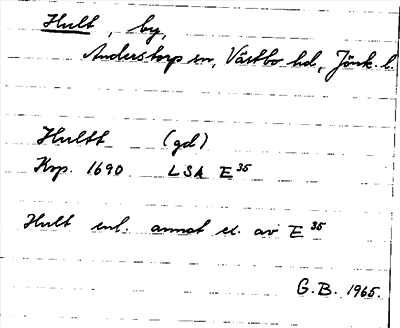 Hult, by,
Anderstorp sn, Västbo hd, Jönk. l.
Hultt (gd)
Ksp. 1690 LSA E 35
Hult enl. annat ex. av E 35
G.B. 1965.